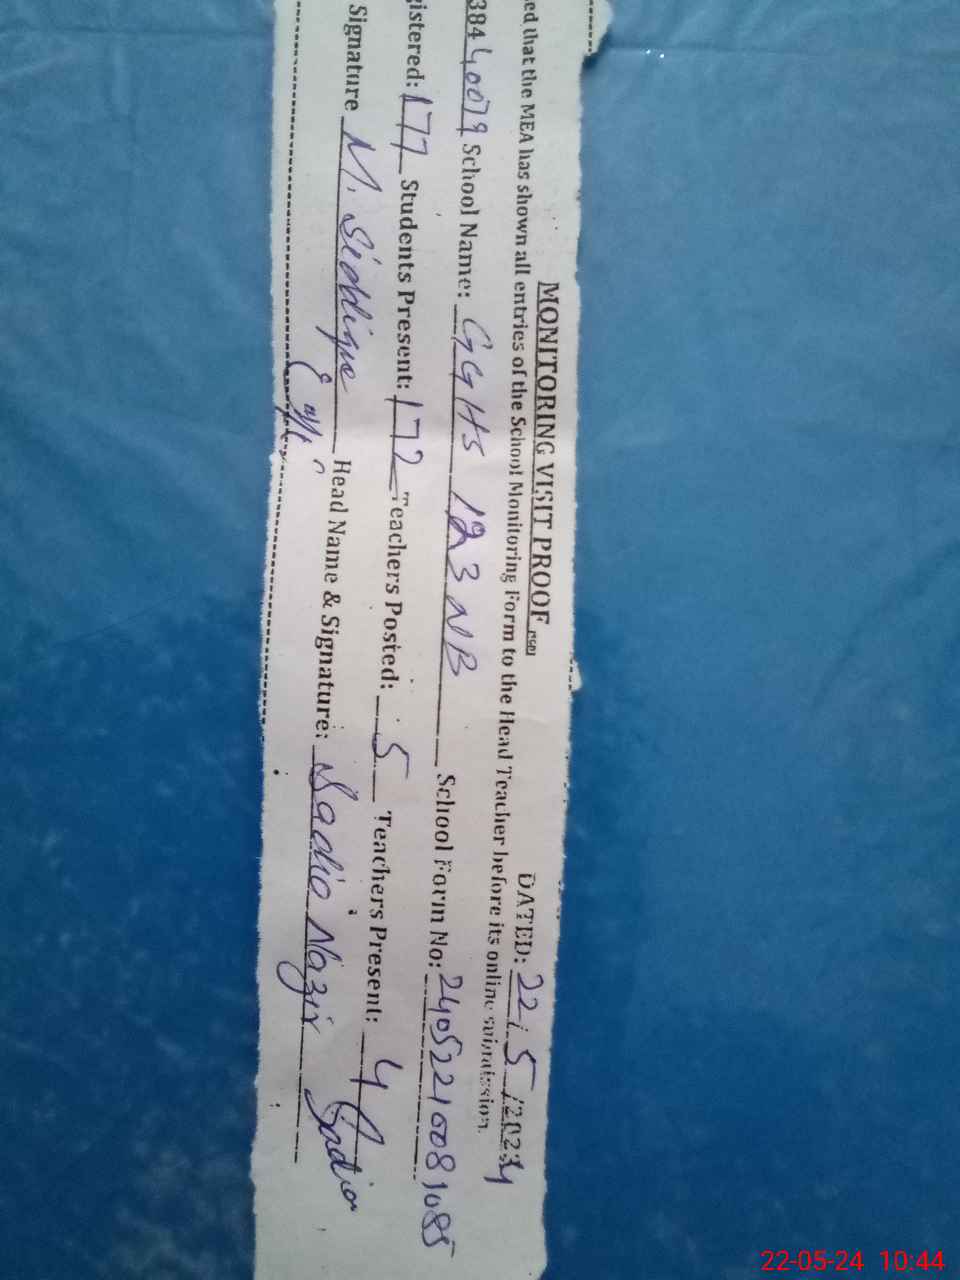 MONITORING VISIT PROOF
DATED: 22/5/2024
ed that the MEA has shown all entries of the School Monitoring Form to the Head Teacher before its online submission.
38440079 School Name: GGHS 123 NB School Form No:
gistered: 177 Students Present: 172 Teachers Posted: 5 Teachers Present: 4
Signature M. Siddique Head Name & Signature: Sadia Nazir Sadia
22-05-24 10:44